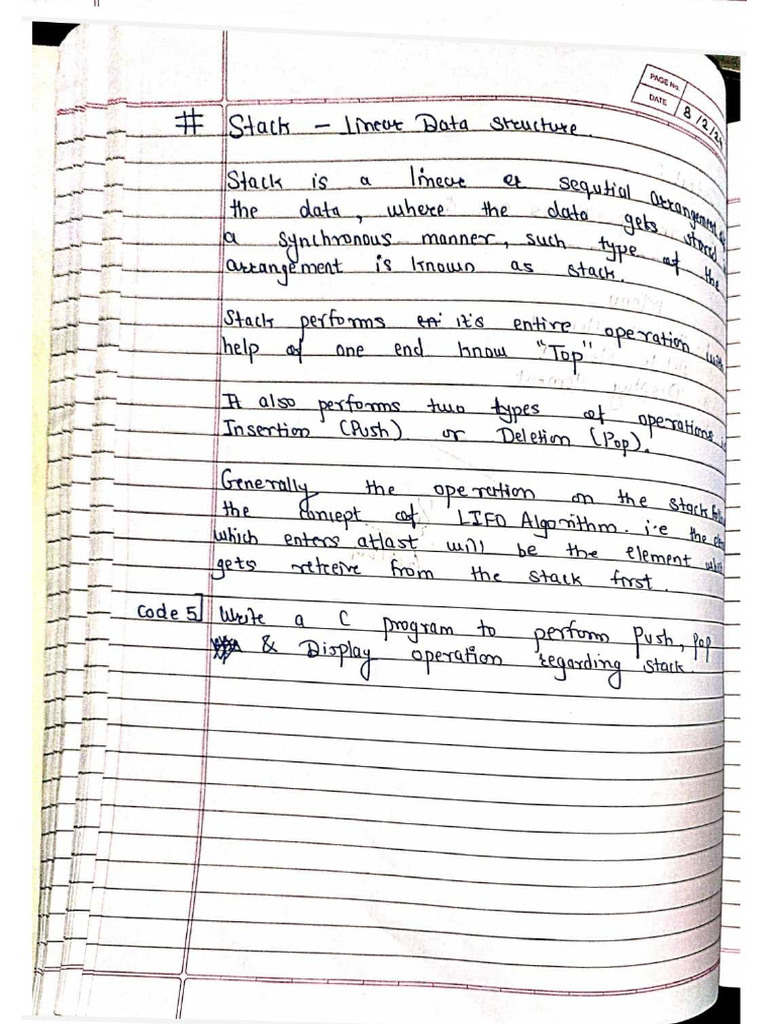 PAGE No.
DATE 8/2/2
# Stack - Linear Data Structure.
Stack is a linear or sequtial arrangement
the data, where the data gets stored
a synchronous manner, such type of the
arrangement is known as stack.
Stack performs it's entire operation with
help of one end know "Top"
It also performs two types of operations
Insertion (Push) or Deletion (Pop).
Generally the operation on the stack
the concept of LIFO Algorithm. i.e the
which enters atlast will be the element
gets retreive from the stack first.
Code 5] Write a C program to perform Push, pop
& Display operation regarding stack.